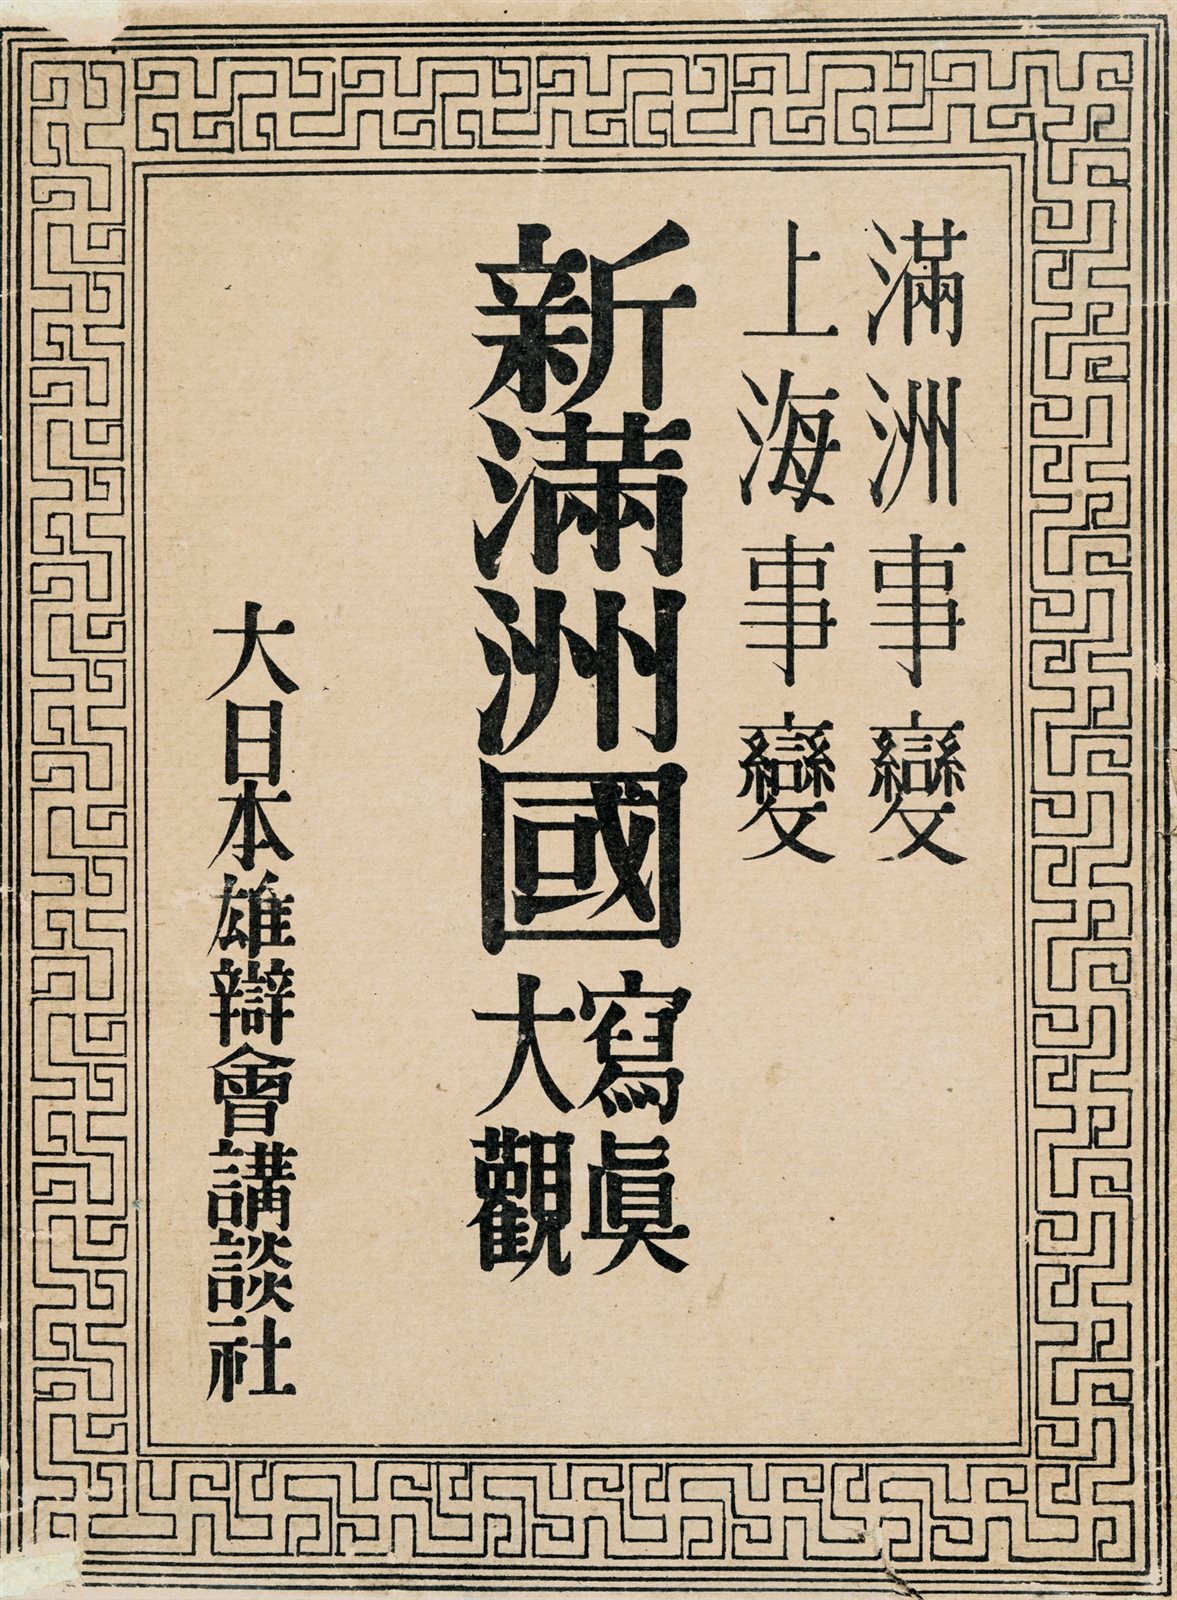 滿洲事變
上海事變
新滿洲國
寫眞
大觀
大日本雄辯會講談社